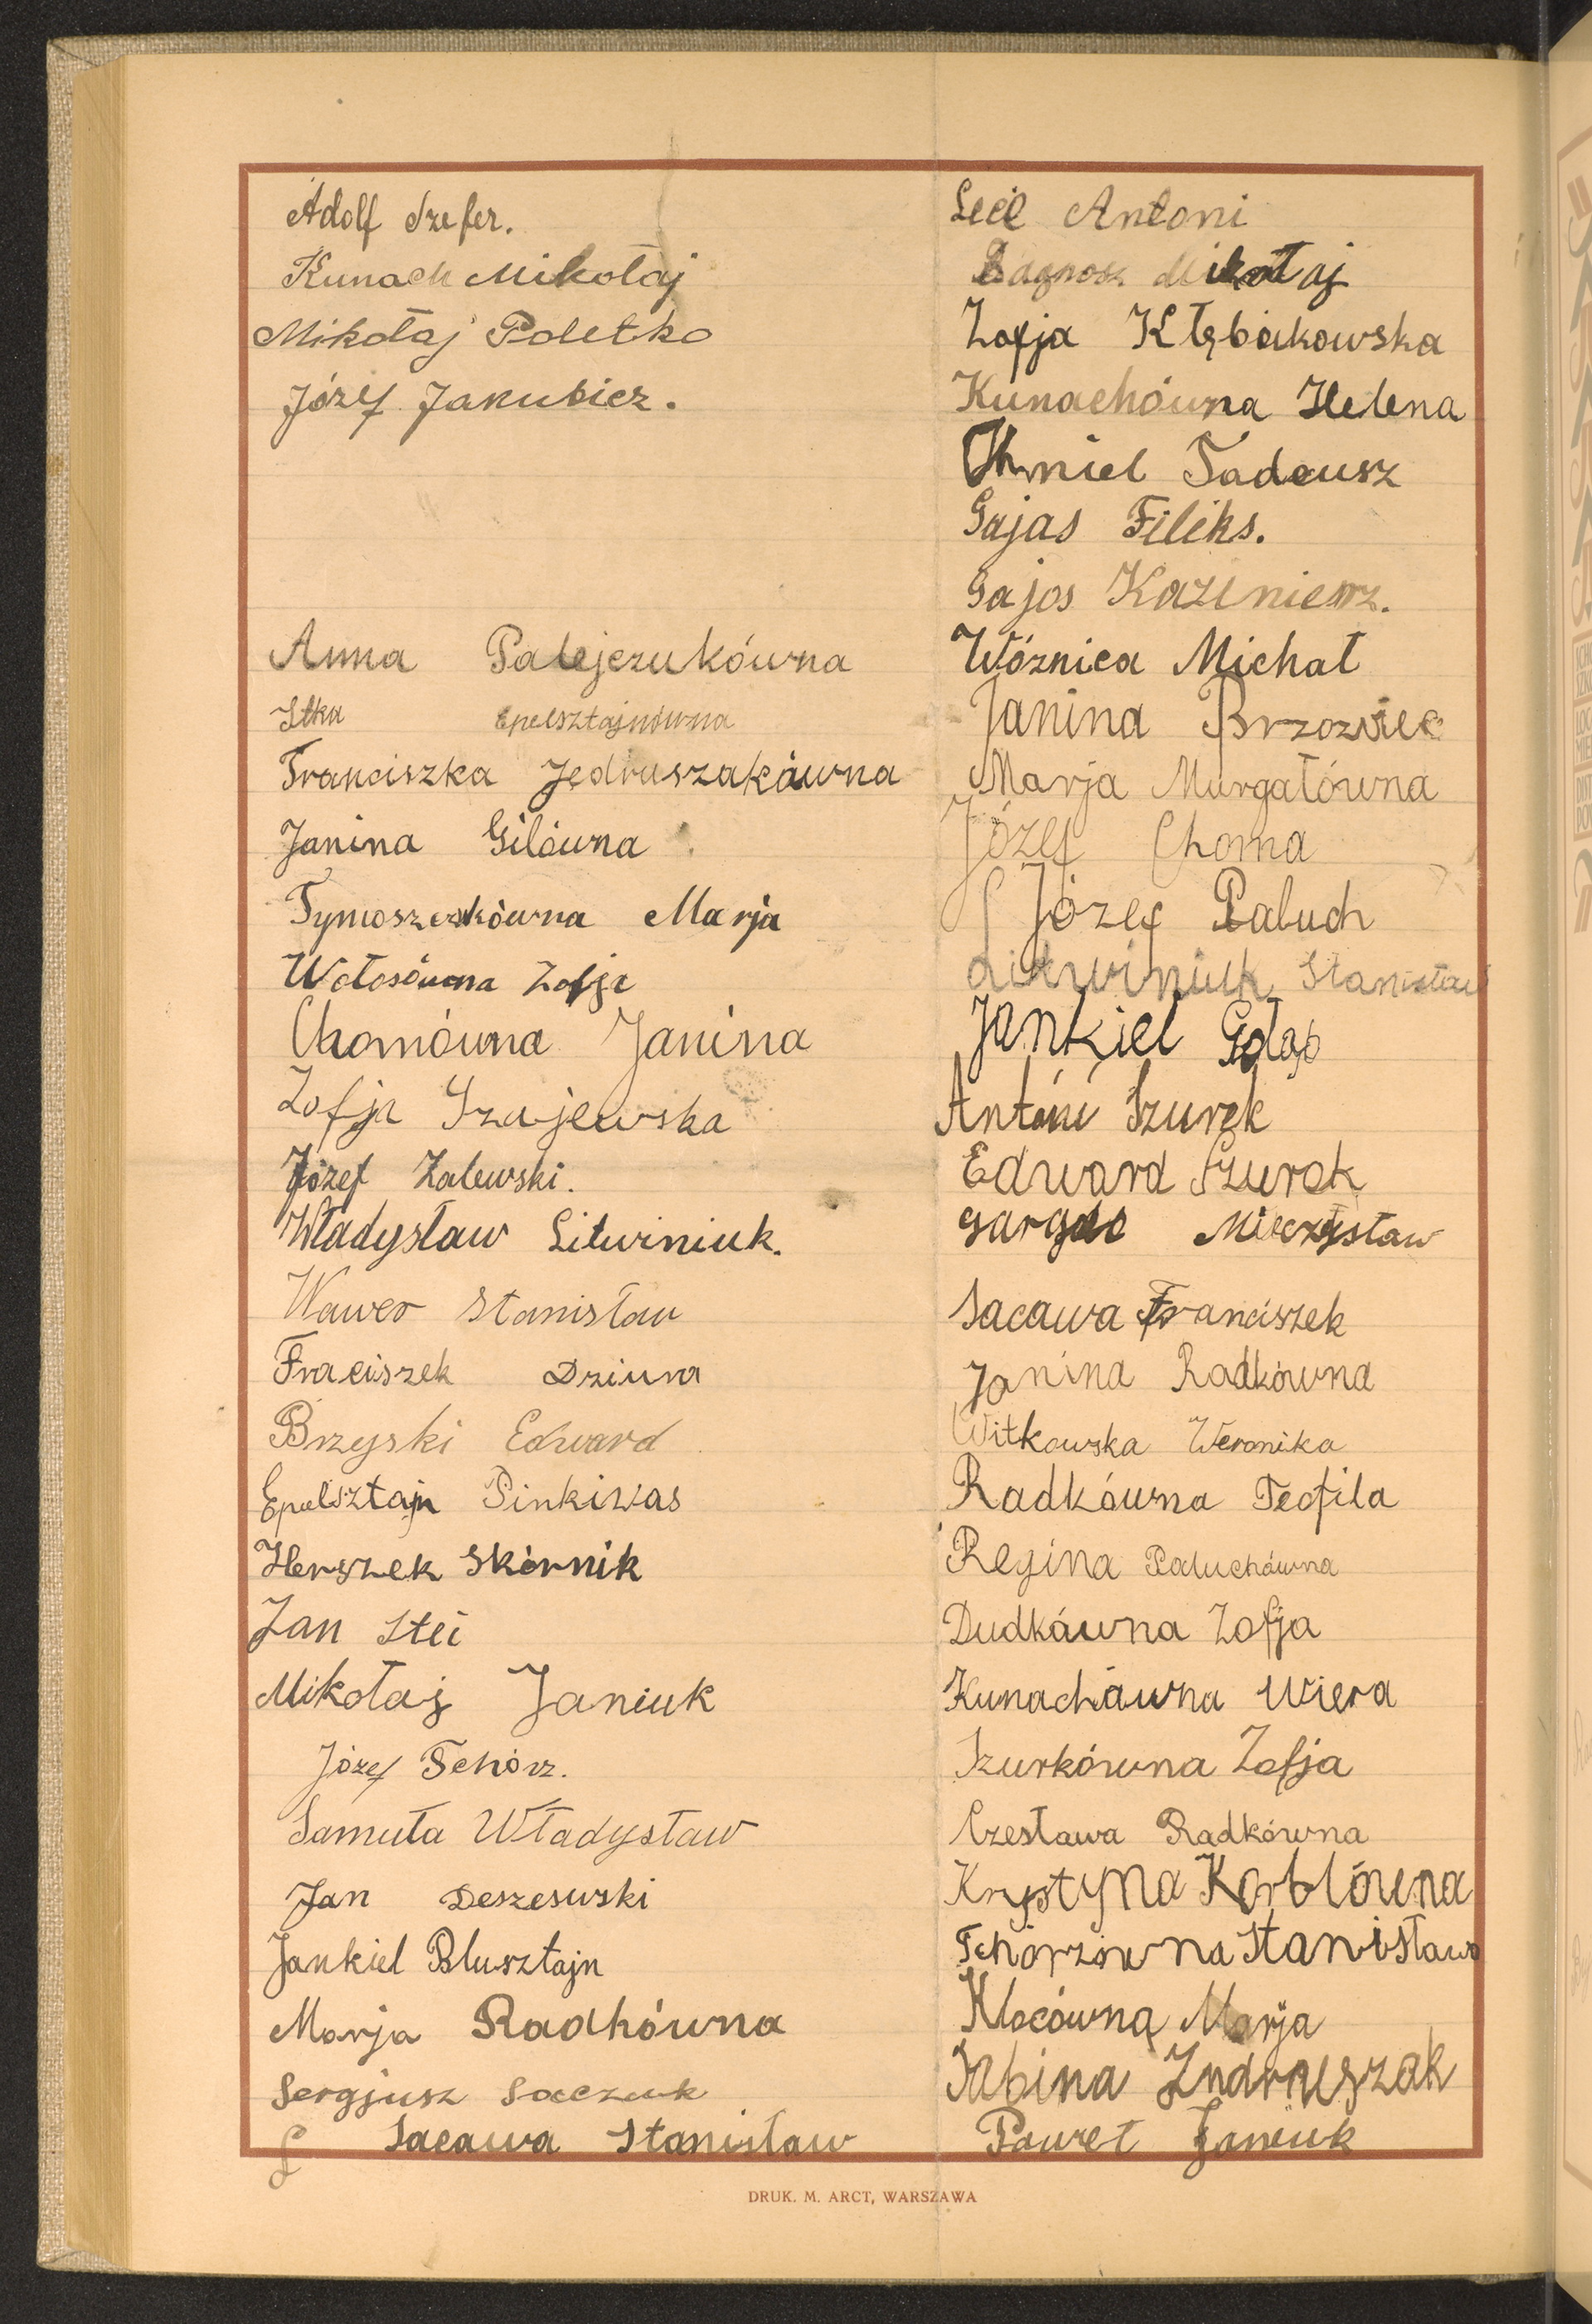 Adolf Szefer.
Kunach Mikołaj
Mikołaj Poletko
Józef Jakubicz.
Anna Palejczukówna
Itka Epelsztajnówna
Franciszka Jędruszakówna
Janina Gilówna
Tymoszczukówna Marja
Wołosówna Zofja
Chomówna Janina
Zofja Szajewska
Józef Zalewski.
Władysław Litwiniuk.
Wawer Stanisław
Fraciszek Dziura
Brzyski Edward
Epelsztajn Pinkiwas
Herszek Skórnik
Jan Steć
Mikołaj Janiuk
Józef Tchórz.
Samuła Władysław
Jan Deszeswski
Jankiel Blusztajn
Marja Radkówna
Sergjusz Saczuk
Sacawa Stanisław
Leć Antoni
Bagnosz Mikołaj
Zofja Kłębukowska
Kunachówna Helena
Chmiel Tadeusz
Gajas Filiks.
Gajos Kazimierz.
Wóżnica Michał
Janina Brzozwiec
Marja Murgałówna
Józef Choma
Józef Paluch
Litwiniuk Stanisław
Jankiel Gołąb
Antoni Szurek
Edward Szurek
Gargol Mieczysław
Sacawa Franciszek
Janina Radkówna
Witkowska Weronika
Radkówna Teofila
Regina Paluchówna
Dudkówna Zofja
Kunachówna Wiera
Szurkówna Zofja
Czesława Radkówna
Krystyna Korblówna
Tchórzówna Stanisława
Klocówną Marja
Sabina Jndruszak
Paweł Janiuk
DRUK. M. ARCT, WARSZAWA